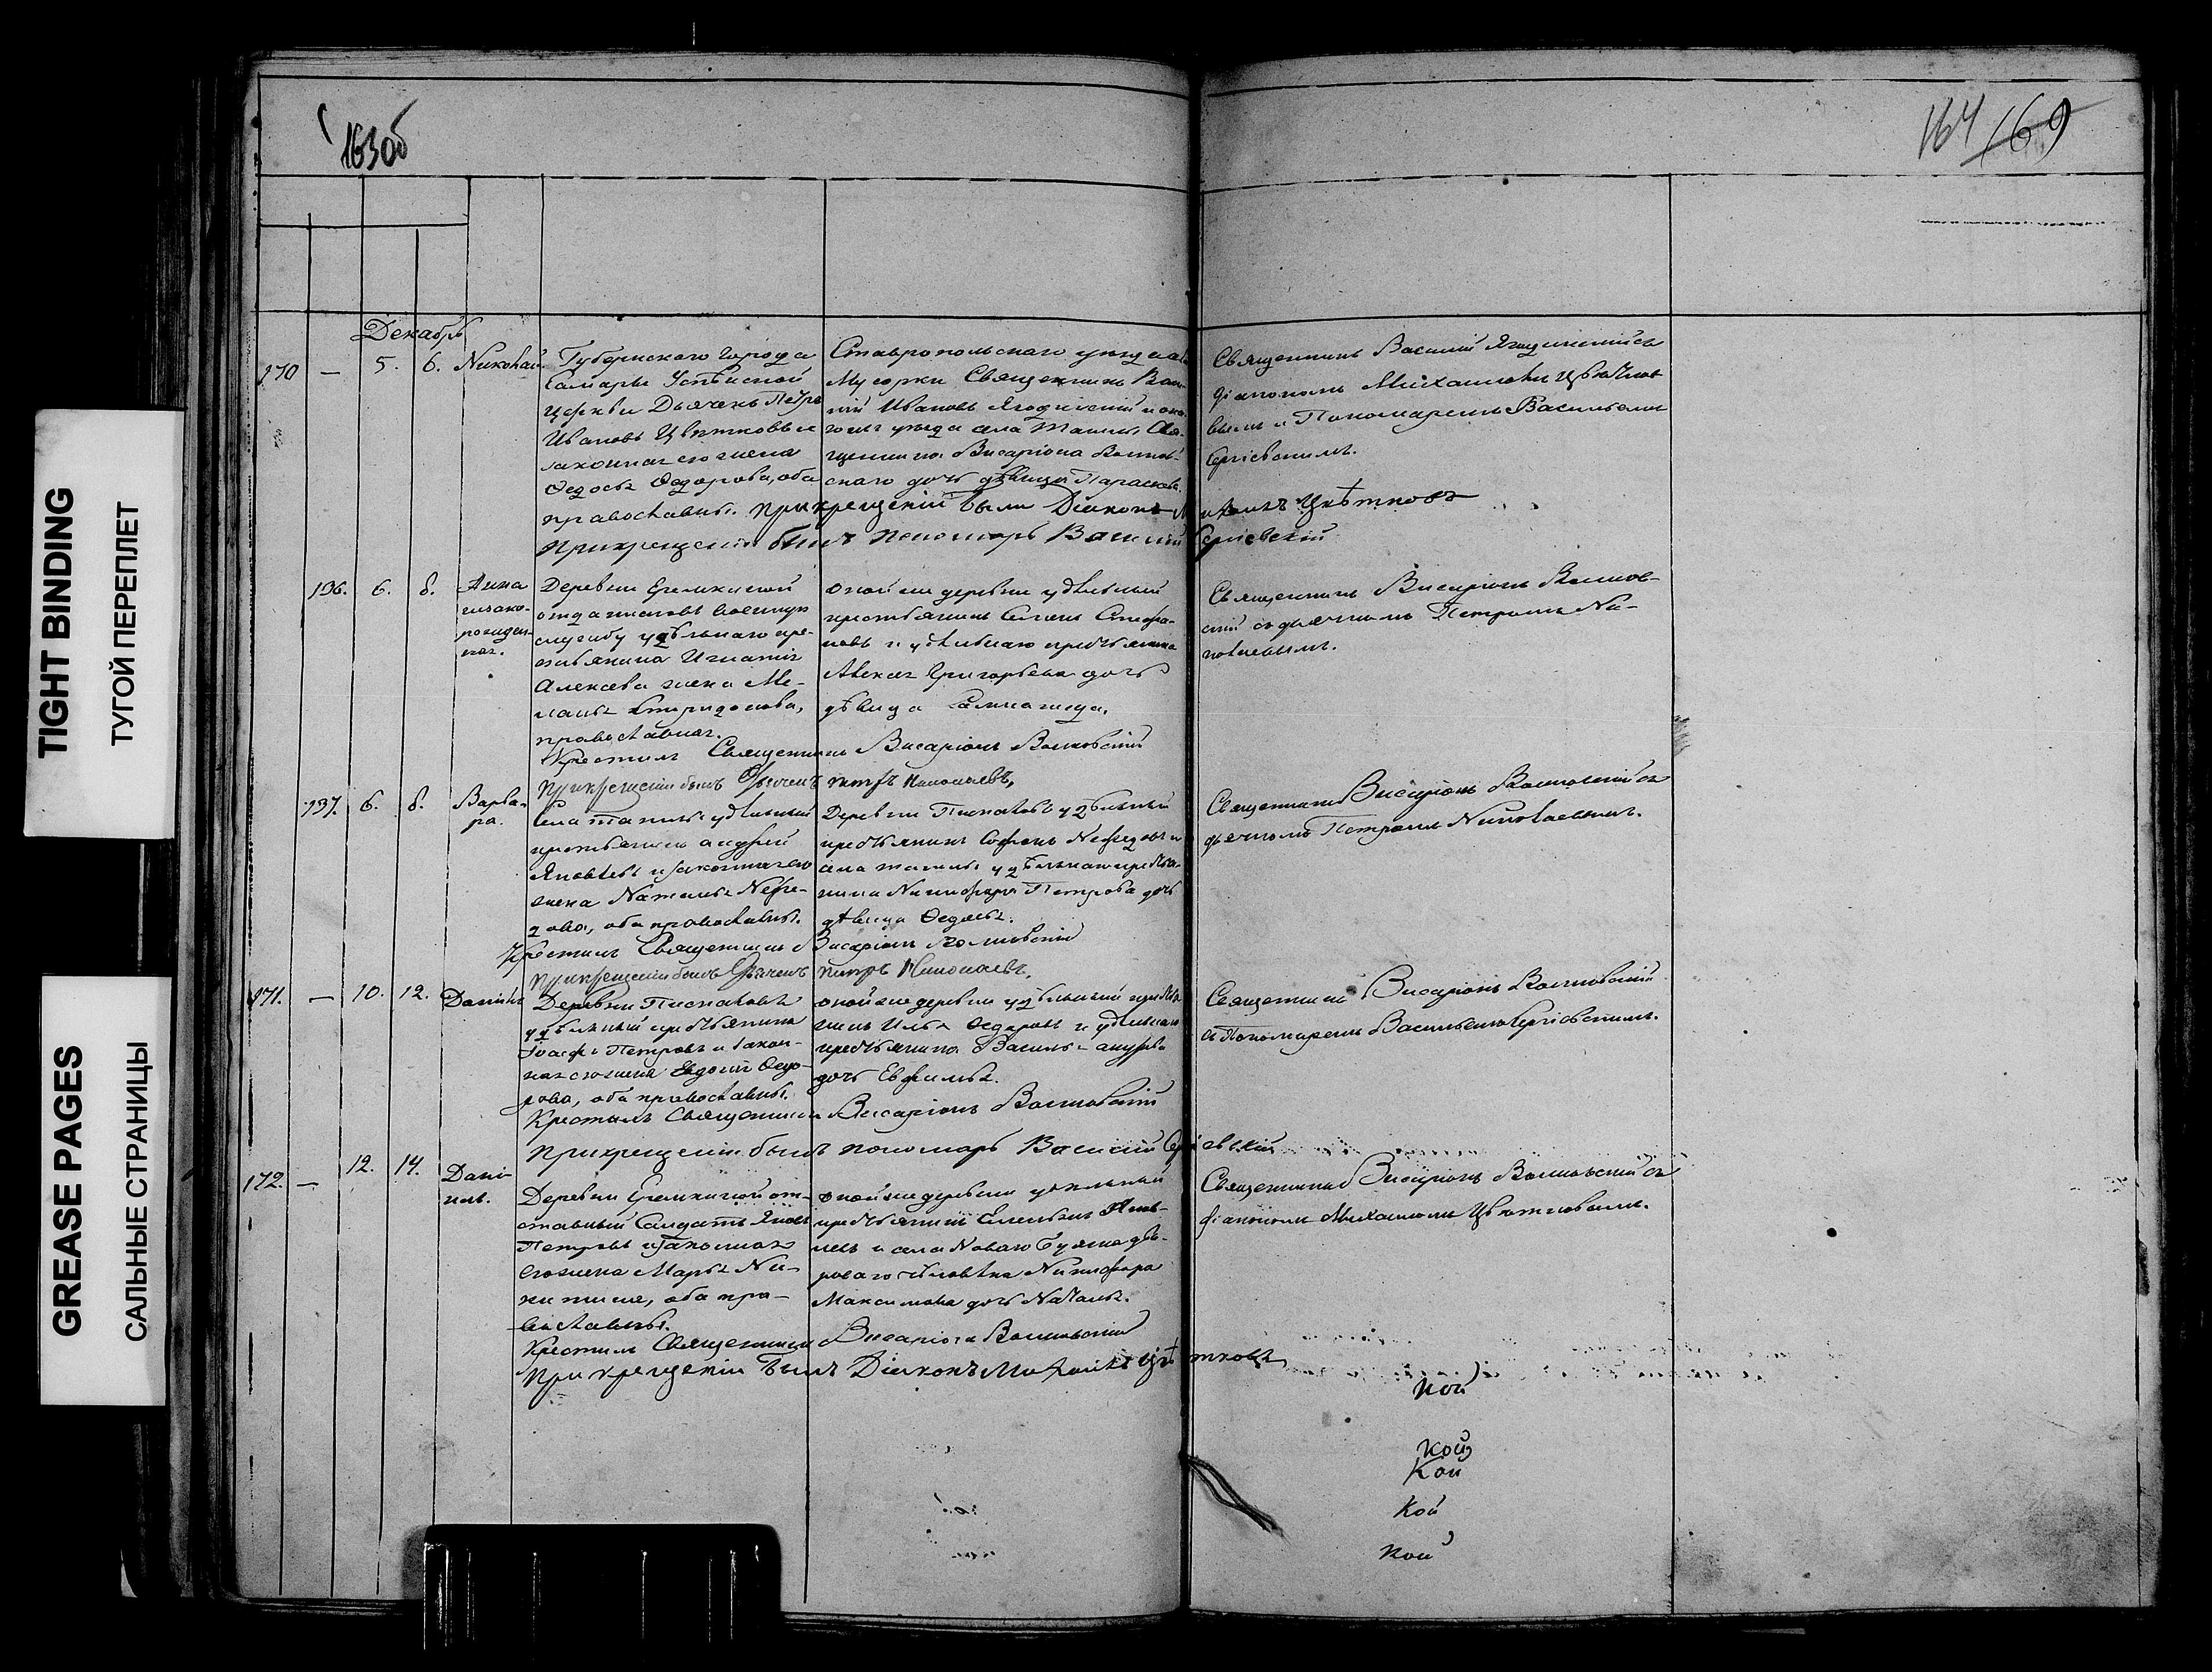 163об
164 169
TIGHT BINDING
ТУГОЙ ПЕРЕПЛЕТ
GREASE PAGES
САЛЬНЫЕ СТРАНИЦЫ
Декабрь
170 — 5. 6. Николай.
Губернскаго города
Самары Успѣнской
церкви Дьячекъ Петръ
Ивановъ Цвѣтковъ и
законная его жена
Ѳедосья Ѳедорова, оба
православные.
Ставропольскаго уѣзда
Мусорки Священникъ Васи-
лій Ивановъ Ягодинскій и
уѣзда села Ташлы Свя-
щенника Висаріона Волков-
скаго дочь дѣвица
Священникъ Василій Ягодинскій съ
діакономъ Михаиломъ Цвѣтко-
вымъ и Пономаремъ Васильемъ
Сергіевскимъ.
При крещеніи былъ Діаконъ Михаилъ Цвѣтковъ
При крещеніи былъ пономарь Василій Сергіевскій
136. 6. 8. Анна
незако-
норожден-
ная.
Деревни Еремкиной
отданнаго въ военную
службу удѣльнаго кре-
стьянина Игнатія
Алексѣева жена Ме-
ланья
православная.
оной же деревни удѣльный
крестьянинъ Стефа-
новъ и удѣльнаго крестьянина
Алексея Григорьева дочь
дѣвица
Священникъ Висаріонъ Волков-
скій съ дьячкомъ Петромъ Ни-
колаевымъ.
Крестилъ Священникъ Висаріонъ Волковскій
При крещеніи былъ Дьячекъ Петръ Николаевъ,
137. 6. 8. Варва-
ра.
Села Ташлы удѣльный
крестьянинъ Андрей
Яковлевъ и законная его
жена Наталья Нефе-
дова, оба православные.
Деревни удѣльный
крестьянинъ Софонъ Нефедовъ и
села Ташлы удѣльнаго крестья-
нина Никифора Петрова дочь
дѣвица Ѳедосья.
Священникъ Висаріонъ Волковскій съ
дьячкомъ Петромъ Николаевымъ.
Крестилъ Священникъ Висаріонъ Волковскій
При крещеніи былъ Дьячекъ Петръ Николаевъ.
171. — 10. 12. Даніилъ
Деревни
удѣльный крестьянинъ
Іоасафъ Петровъ и закон-
ная его жена Евдокія Ѳедо-
рова, оба православные.
оной же деревни удѣльный крестья-
нинъ Илья Ѳедоровъ и удѣльнаго
крестьянина Василья
дочь Евфимья.
Священникъ Висаріонъ Волковскій
съ Пономаремъ Васильемъ Сергіевскимъ.
Крестилъ Священникъ Висаріонъ Волковскій
При крещеніи былъ пономарь Василій Сергіевскій
172. — 12. 14. Дані-
илъ.
Деревни Еремкиной от-
ставный Солдатъ Яковъ
Петровъ и законная
его жена Марья Ни-
китина, оба пра-
вославные.
оной же деревни удѣльный
крестьянинъ
и села Новаго Буяна дво-
роваго человѣка Никифора
Максимова дочь Наталья.
Священникъ Висаріонъ Волковскій съ
діакономъ Михаиломъ Цвѣтковымъ.
Крестилъ Священникъ Висаріонъ Волковскій
При крещеніи былъ Діаконъ Михаилъ Цвѣтковъ
кой
кой
Кой
Кой
кой